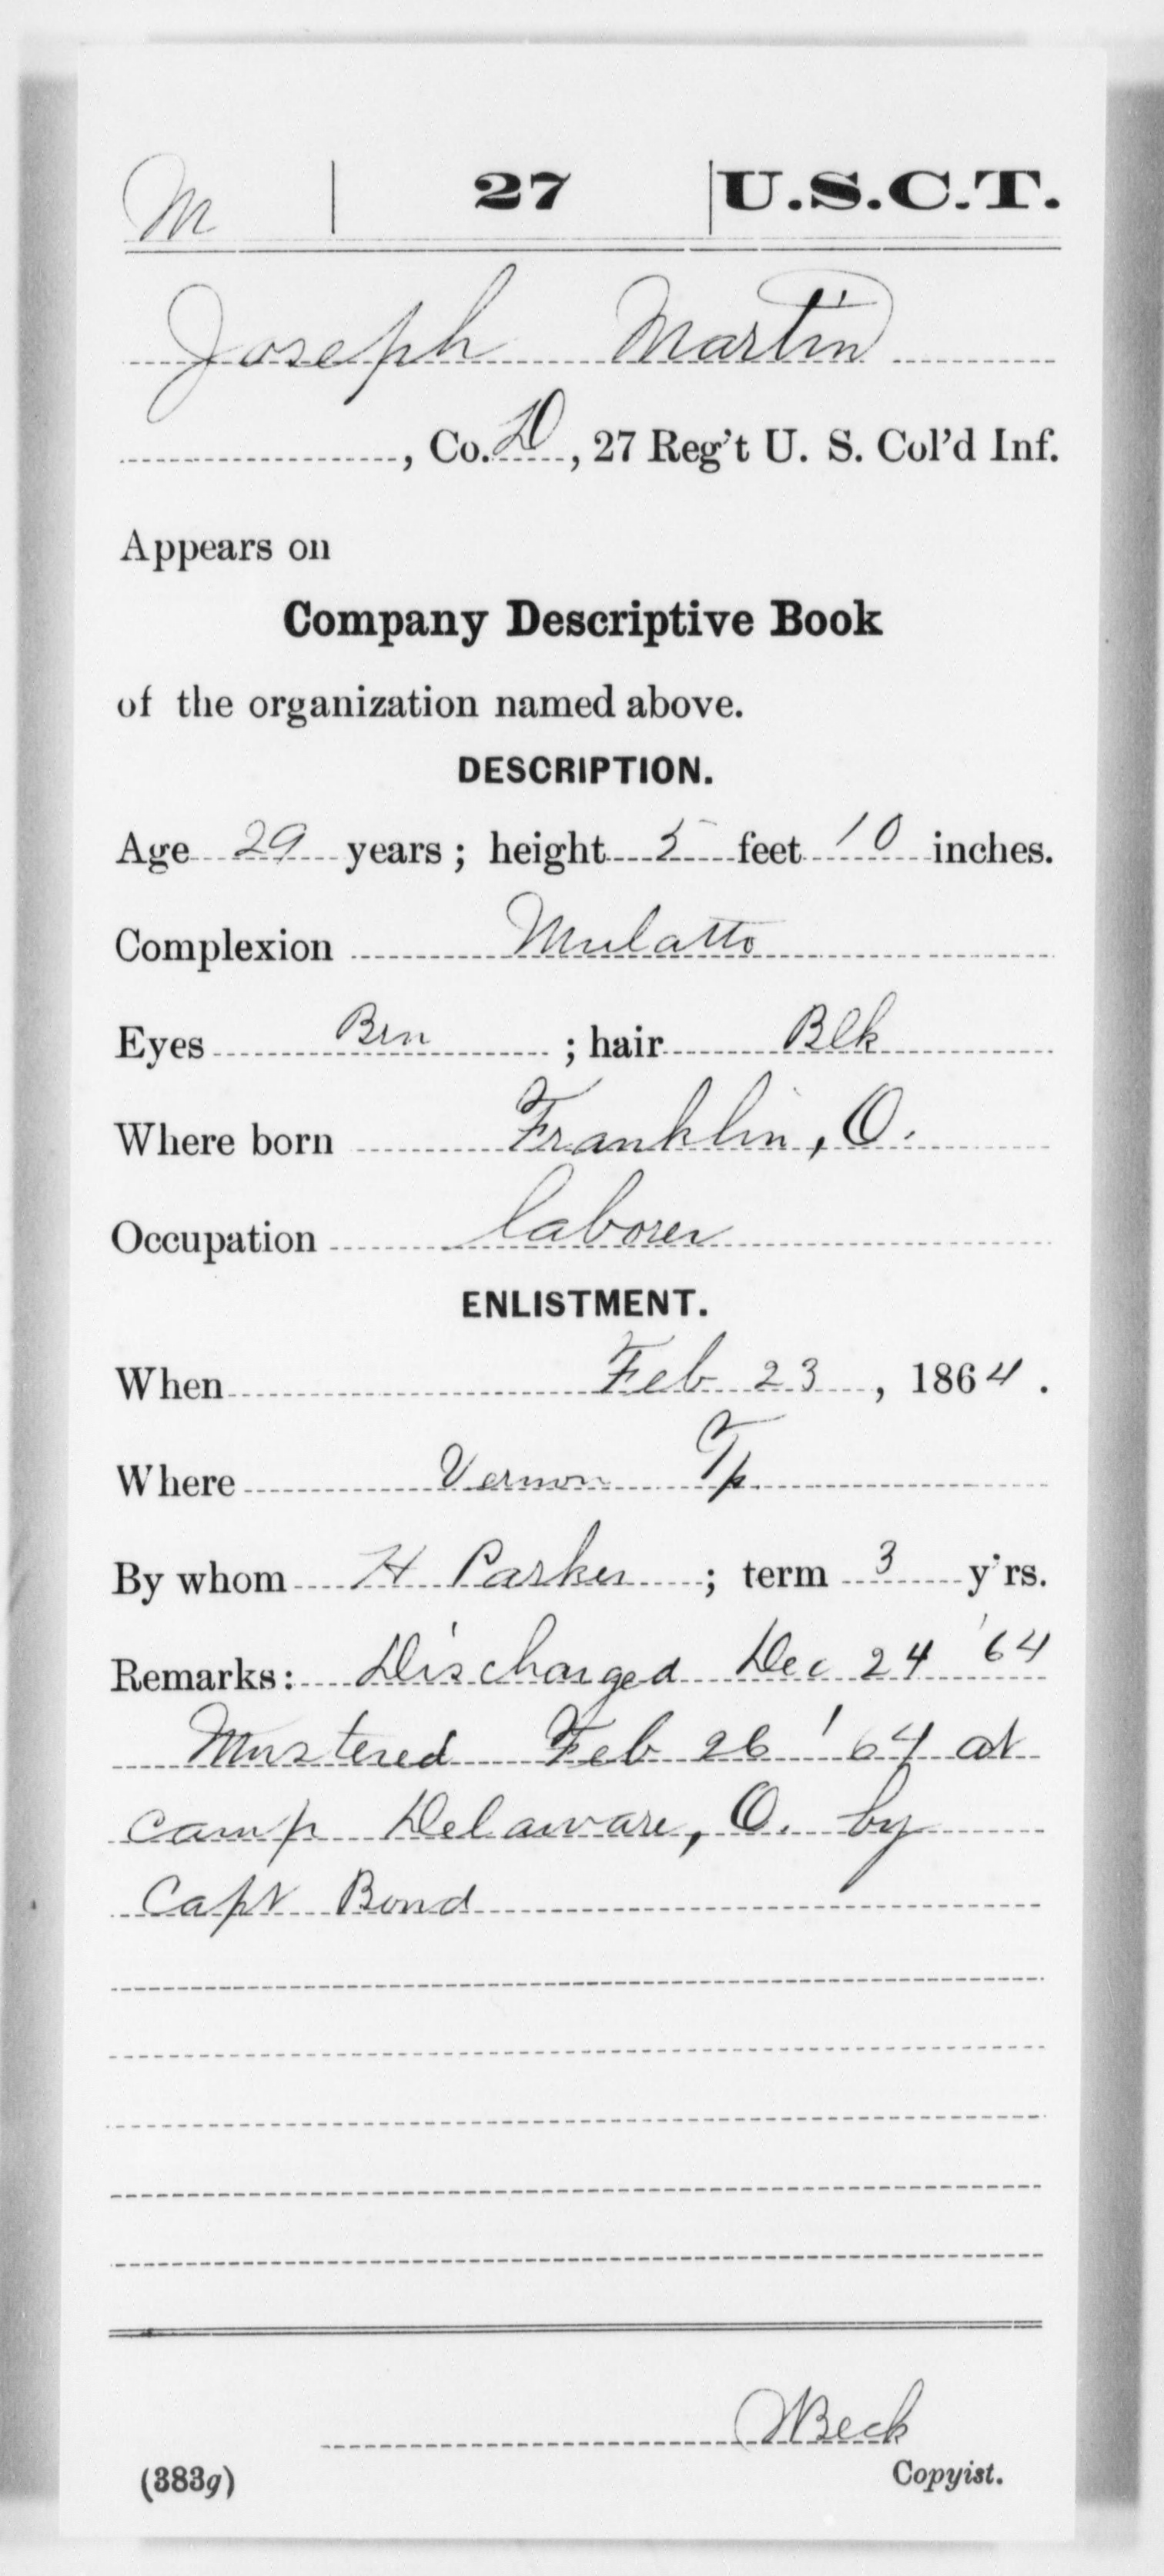 M | 27 | U.S.C.T.
Joseph Martin
, Co. D, 27 Reg't U. S. Col'd Inf.
Appears on
Company Descriptive Book
of the organization named above.
DESCRIPTION.
Age 29 years; height 5 feet 10 inches.
Complexion Mulatto
Eyes Brn ; hair Blk
Where born Franklin, O.
Occupation laborer
ENLISTMENT.
When Feb 23, 1864.
Where Vernon Tp.
By whom H Parker; term 3 y'rs.
Remarks: Discharged Dec 24 '64
Mustered Feb 26 '64 at
camp Delaware, O. by
Capt Bond
Beck
(383g) Copyist.